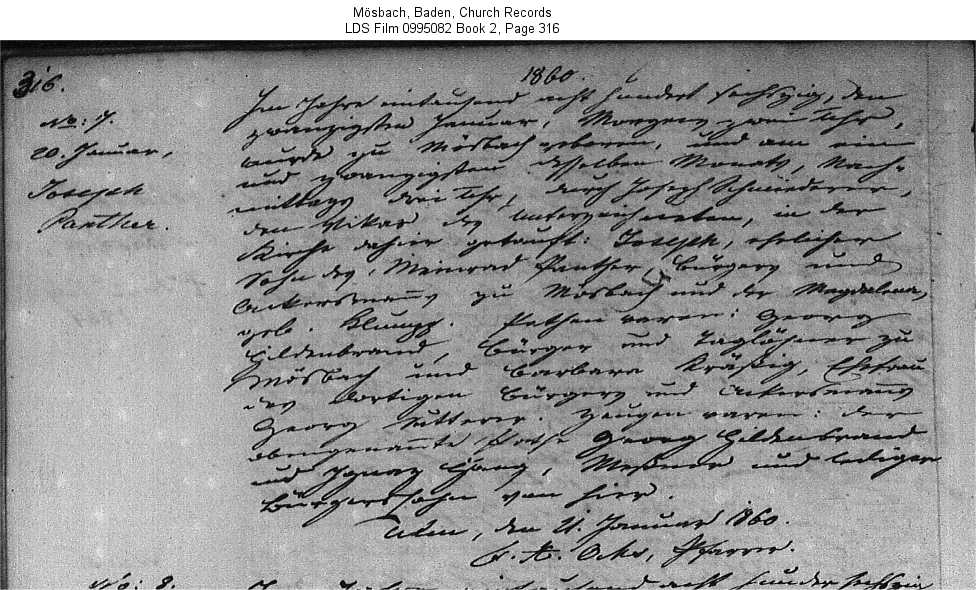 Mösbach, Baden, Church Records
LDS Film 0995082 Book 2, Page 316
316.
1860.
No: 7.
20. Januar,
Joseph
Panther.
Im Jahre eintausend acht hundert sechszig, den
zwanzigsten Januar, Morgens zwei Uhr,
wurde zu Mösbach geboren, und am ein
und zwanzigsten desselben Monats, Nach-
mittags drei Uhr, durch Joseph Schmiederer,
den Vikar des Unterzeichneten, in der
Kirche dahier getauft: Joseph, ehelicher
Sohn des, Meinrad Panther, Bürgers und
Ackersmanns zu Mösbach und der Magdalena,
geb. Klumpp. Pathen waren: Georg
Hildenbrand, Bürger und Taglöhner zu
Mösbach und Barbara Kräßig, Ehefrau
des dortigen Bürgers und Ackersmanns
Georg Sutterer. Zeugen waren: der
obengenannte Pathe Georg Hildenbrand
und Ignaz Gang, Meßner und lediger
Bürgerssohn von hier.
Ulm, den 21. Januar 1860.
Ochs, Pfarrer.
No: 8.